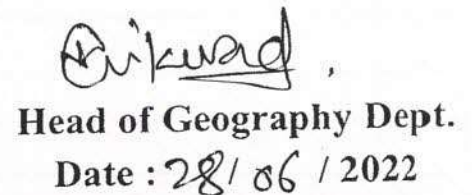 Head of Geography Dept.
Date : 28/ 06 / 2022